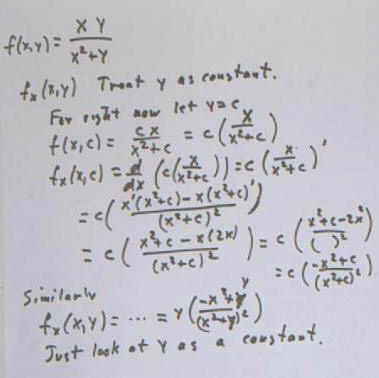 f(x,y) = XY / x²+Y
fₓ(x,y) Treat y as constant.
For right now let y=c
f(x,c) = cx / x²+c = c(x / x²+c)
fₓ(x,c) = d/dx (c(x / x²+c)) = c(x / x²+c)'
= c(x'(x²+c) - x(x²+c)' / (x²+c)²)
= c(x²+c - x(2x) / (x²+c)²) = c(x²+c-2x² / ( )²)
= c(-x²+c / (x²+c)²)
Similarly
fₓ(x,y) = ... = y(-x²+y / (x²+y)²)
Just look at y as a constant.